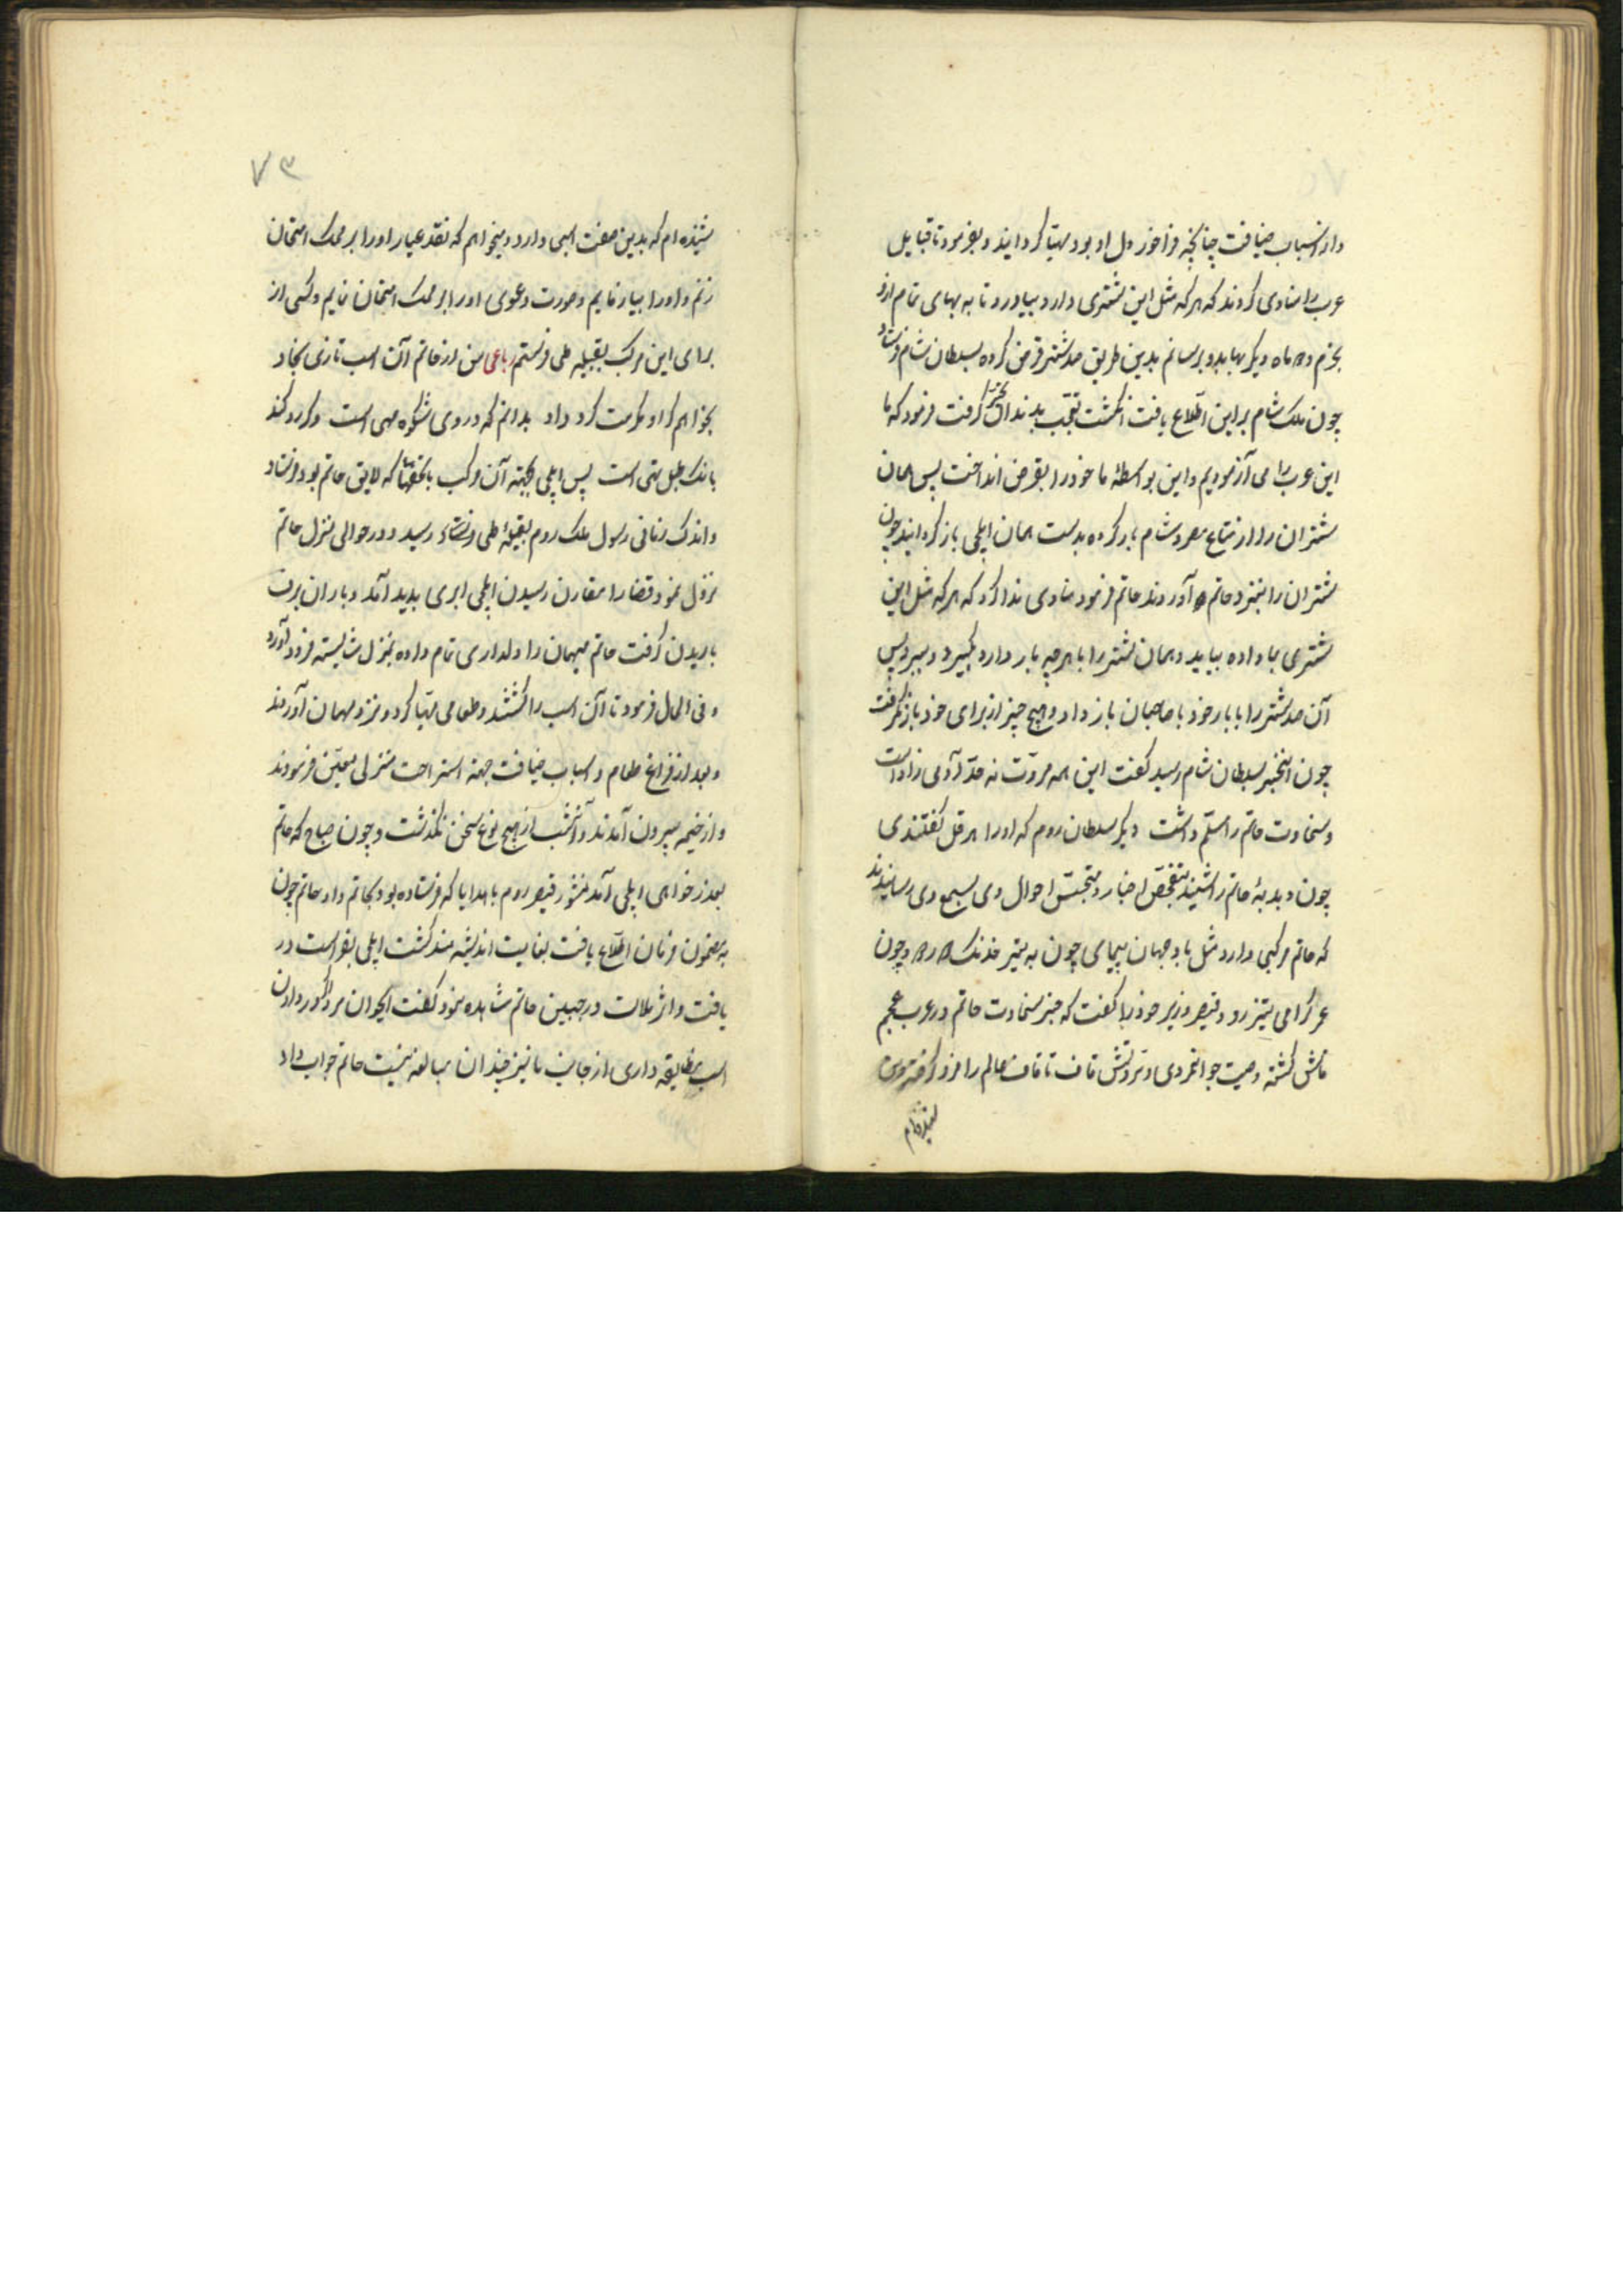 واز اسباب ضیافت چنانچه فراخور دل او بود مهیّا کردانید و بفرمود تا قبایل
عرب را منادی کردند که هر که مثل این شتری دارد بیاورد تا به بهای تمام ازو
بخرم و ماه دیکر بها بدو برسانم بدین طریق صد شتر قرض کرده بسلطان شام فرستاد
چون ملک شام براین اطّلاع یافت انکشت تعجّب بدندان تحیّر کرفت فرمود که ما
این عرب را می آزمودیم واین بواسطهٔ ما خود را بقرض انداخت پس همان
شتران را از متاع مصر وشام بار کرده بدست همان ایلچی باز کردانید چون
شتران را بنزد حاتم آوردند حاتم فرمود منادی ندا کرد که هر که مثل این
شتری بما داده بیاید وهمان شتر را با هرچه بار دارد بگیرد و ببرد پس
آن صد شتر را با بار خود با صاحبان باز داد و هیچ چیز از برای خود باز نکرفت
چون اینخبر بسلطان شام رسید کفت این همه مروّت نه حدّ آدمی زاد است
وسخاوت حاتم را مسلّم داشت دیکر سلطان روم که اورا هرقل کفتندی
چون دبدبهٔ حاتم را شنید بتفحّص اخبار و تجسّس احوال وی بسمع وی رسانیدند
که حاتم مرکبی دارد مثل باد جهان پیمای چون به تیر خدنک رو وچون
عمر کرامی تیز رو وقیصر وزیر خود را کفت که خبر سخاوت حاتم در عرب وعجم
فاش کشته وصیت جوانمردی و مروّتش قاف تا قاف عالم را فرو کرفته و من
شنیده ام
۷۳
شنیده ام که بدین صفت اسبی دارد و میخواهم که نقد عیار اورا بر محک امتحان
زنم واورا بیازمایم وصورت دعوی اورا بر محک امتحان نمایم وکسی از
برای این مرکب بقبیلهٔ طی فرستم رباعی من از حاتم آن اسب تازی نژاد
بخواهم کر او مکرمت کرد وداد بدانم که در وی شکوه مهی است وکر رد کند
بانک طبل تهی است پس ایلچی بجهته آن مرکب با تحفها که لایق حاتم بود فرستاد
واندک زمانی رسول ملک روم بقبیلهٔ طی رسید و در حوالی منزل حاتم
نزول نمود قضارا مقارن رسیدن ایلچی ابری بدید آمد وباران برف
باریدن کرفت حاتم میهمان را دلداری تمام داده بمنزل شایسته فرود آورد
وفی الحال فرمود تا آن اسب را کشتند وطعامی مهیّا کرد و نزد مهمان آوردند
وبعد از فراغ طعام واسباب ضیافت جهته استراحت منزلی معیّن فرمودند
واز خیمه بیرون آمدند وآنشب از هیچ نوع سخن نکذشت وچون صباح که حاتم
بعذرخواهی ایلچی آمد منشور قیصر روم با هدایا که فرستاده بود بحاتم داد حاتم چون
به مضمون فرمان اطّلاع یافت بغایت اندیشه مند کشت ایلچی بفراست در
یافت واثر ملالت در جبین حاتم مشاهده نمود کفت ایجوان مرد اکر در دادن
اسب مضایقه داری از جانب ما نیز چندان مبالغه نیست حاتم جواب داد